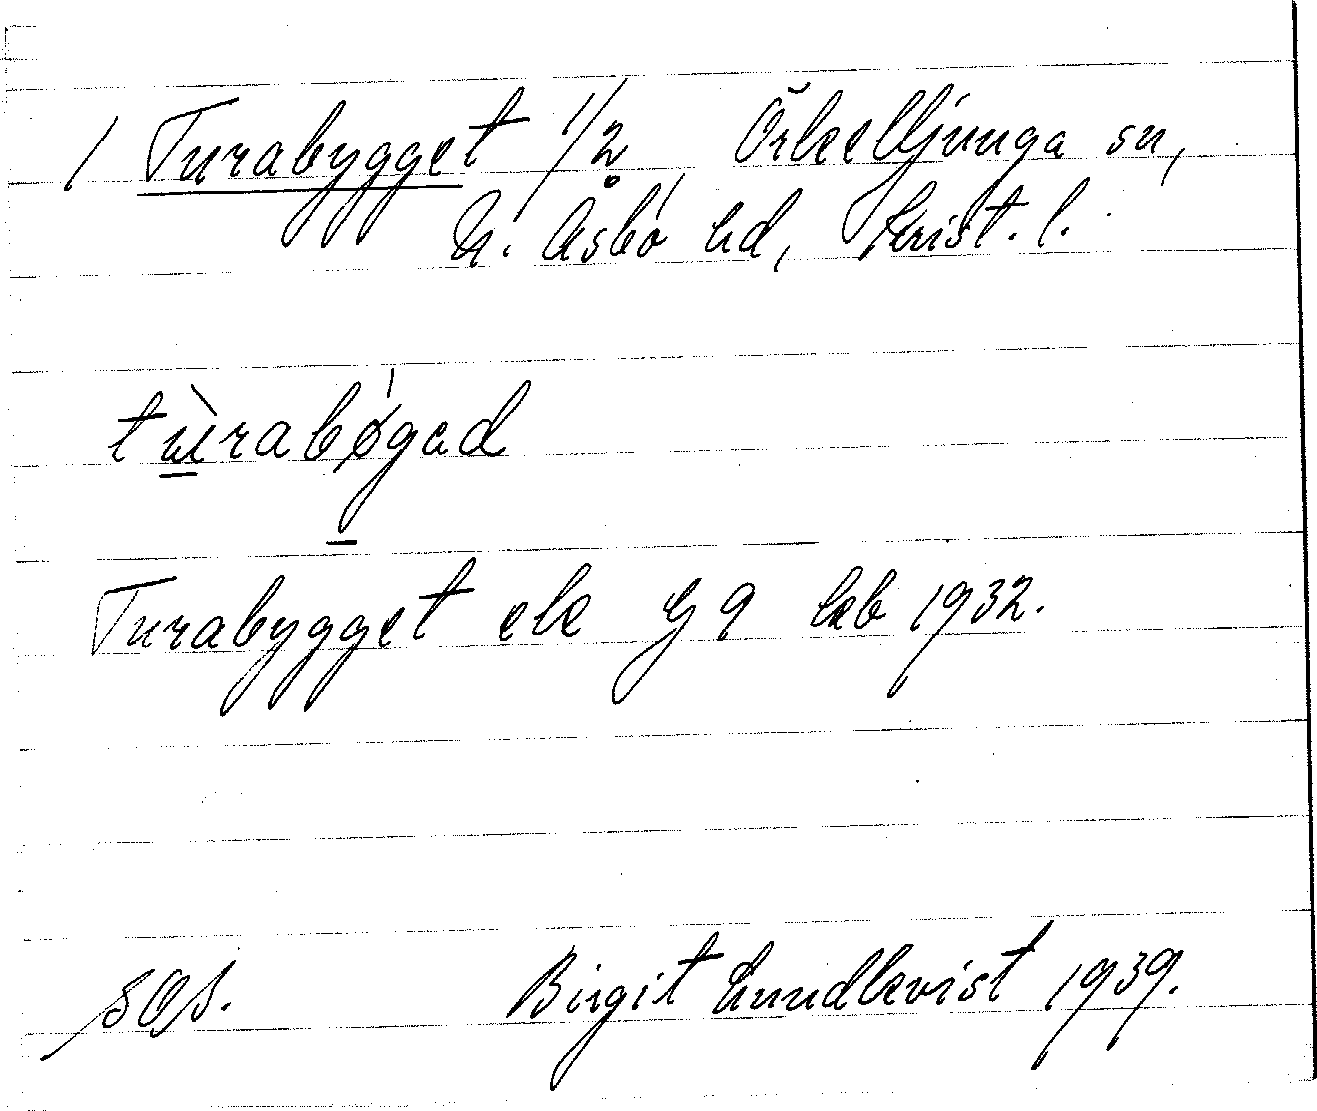 1 Turabygget 1/2 Örkelljunga sn,
N. Åsbo hd, Krist. l.
tùrabýgad
Turabygget ek G 9 kb 1932.
SOS. Birgit Lundkvist 1939.